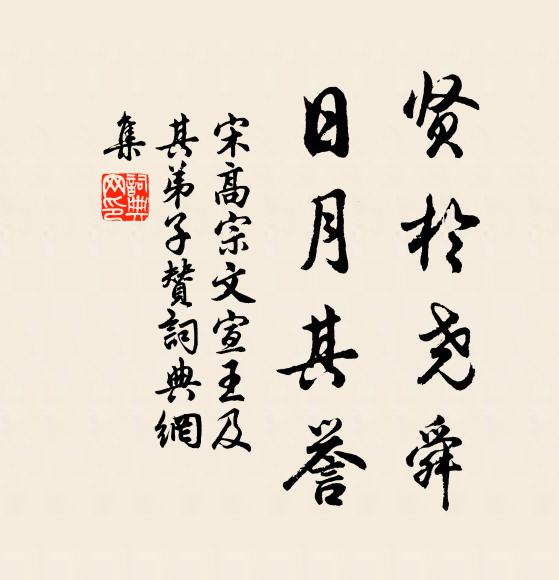 贤於尧舜
日月其誉
宋高宗文宣王及
其弟子赞词典網
集
詞典網印